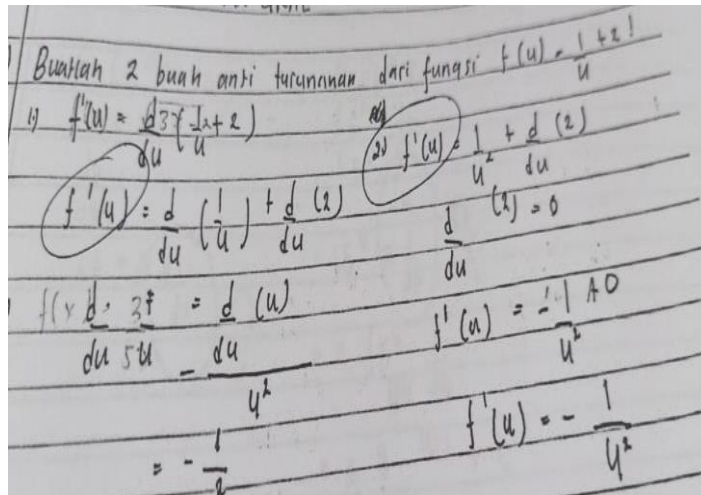 Buatlah 2 buah anti turunanan dari fungsi f(u) = 1/u + 2!
1) f'(u) = d/du (1/u + 2)
f'(u) = d/du (1/u) + d/du (2)
d/du = d/du (u)
- u²
= - 1/2
2) f'(u) = 1/u² + d/du (2)
d/du (2) = 0
f'(u) = - 1/u² + 0
f'(u) = - 1/u²